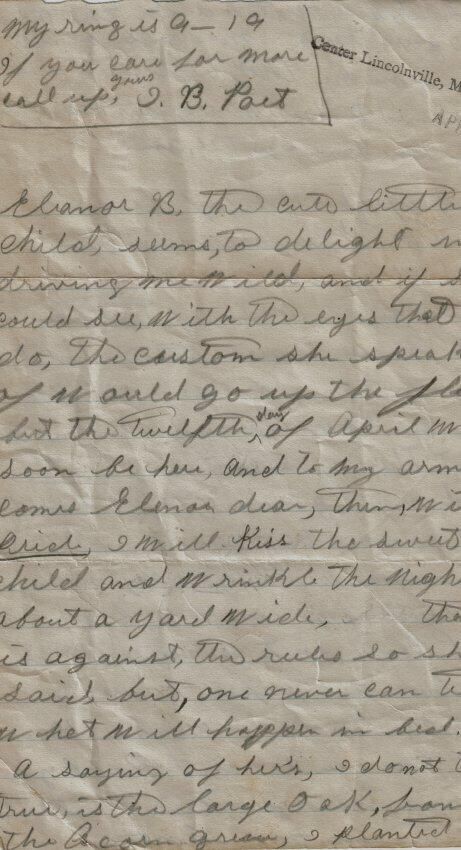 My ring is 9-19
If you care for more
call up, yours I. B. Poet
Center Lincolnville, M
AP
Eleanor B. the cute little
child, seems, to delight
driving me wild, and if s
could see, with the eyes that
do, the custom she speak
of would go up the fl
but the twelfth, day of April w
soon be here, and to my arm
comes Elenor dear, then, wi
I will Kiss the sweet
child and wrinkle the nigh
about a yard wide, tho
is against, the rules so sh
said, but, one never can t
what will happen in bed.
A saying of hers, I do not t
true, is the large Oak, from
the Acorn grew, I planted